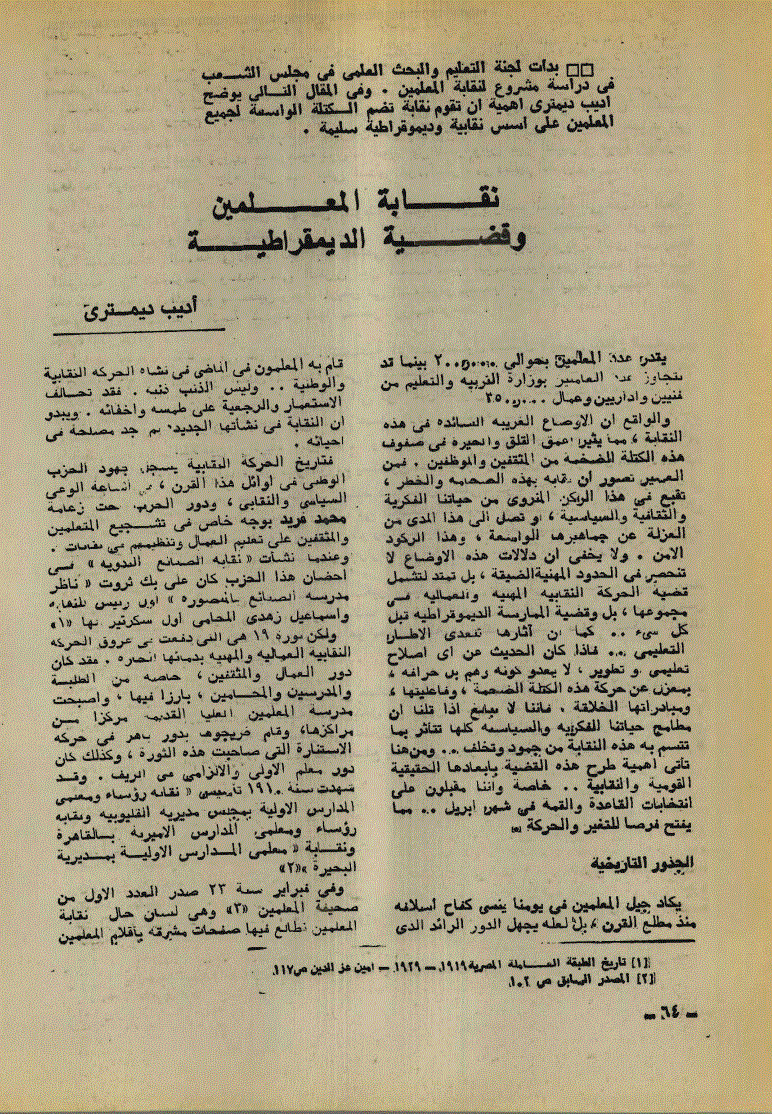 □□ بدأت لجنة التعليم والبحث العلمى فى مجلس الشعب
فى دراسة مشروع لنقابة المعلمين . وفى المقال التالى يوضح
أديب ديمترى أهمية ان تقوم نقابة تضم الكتلة الواسعة لجميع
المعلمين على أسس نقابية وديموقراطية سليمة .
نقابة المعلمين
وقضية الديمقراطية
أديب ديمترى
يقدر عدد المعلمين بحوالى ٢٠٠٫٠٠٠ بينما قد
يتجاوز عدد العاملين بوزارة التربية والتعليم من
فنيين واداريين وعمال
والواقع ان الاوضاع الغريبة السائدة فى هذه
النقابة ، مما يثير أعمق القلق والحيرة فى صفوف
هذه الكتلة الضخمة من المثقفين والموظفين . فمن
العسير تصور ان نقابة بهذه الضخامة والخطر ،
تقبع فى هذا الركن المنزوى من حياتنا الفكرية
والثقافية والسياسية ، او تصل الى هذا المدى من
العزلة عن جماهيرها الواسعة ، وهذا الركود
الآمن . ولا يخفى ان دلالات هذه الاوضاع لا
تنحصر فى الحدود المهنية الضيقة ، بل تمتد لتشمل
قضية الحركة النقابية المهنية والعمالية فى
مجموعها ، بل وقضية الممارسة الديموقراطية قبل
كل شىء .. كما ان آثارها تتعدى الاطار
التعليمى .. فاذا كان الحديث عن اى اصلاح
تعليمى او تطوير ، لا يعدو كونه وهم بل خرافة ،
بمعزل عن حركة هذه الكتلة الضخمة ، وفاعليتها ،
ومبادراتها الخلاقة ، فاننا لا نبالغ اذا قلنا ان
مطامح حياتنا الفكرية والسياسية كلها تتأثر بما
تتسم به هذه النقابة من جمود وتخلف .. ومن هنا
تأتى أهمية طرح هذه القضية بابعادها الحقيقية
القومية والنقابية .. خاصة واننا مقبلون على
انتخابات القاعدة والقمة فى شهر ابريل .. مما
يفتح فرصا للتغير والحركة
الجذور التاريخية
يكاد جيل المعلمين فى يومنا ينسى كفاح أسلافه
منذ مطلع القرن ، بل لعله يجهل الدور الرائد الذى
قام به المعلمون فى الماضى فى نشأة الحركة النقابية
والوطنية .. وليس الذنب ذنبه . فقد تحالف
الاستعمار والرجعية على طمسه واخفائه . ويبدو
ان النقابة فى نشأتها الجديدة لم تجد مصلحة فى
احيائه .
فتاريخ الحركة النقابية يسجل جهود الحزب
الوطنى فى أوائل هذا القرن ، فى اشاعة الوعى
السياسى والنقابى ، ودور الحزب تحت زعامة
محمد فريد بوجه خاص فى تشجيع المتعلمين
والمثقفين على تعليم العمال وتنظيمهم فى نقابات .
وعندما نشأت « نقابة الصنائع اليدوية » فى
أحضان هذا الحزب كان على بك ثروت « ناظر
مدرسة الصنائع بالمنصورة » أول رئيس للنقابة
واسماعيل زهدى المحامى أول سكرتير لها «١»
ولكن ثورة ١٩ هى التى دفعت فى عروق الحركة
النقابية العمالية والمهنية بدمائها الحارة . فقد كان
دور العمال والمثقفين ، خاصة من الطلبة
والمدرسين والمحامين ، بارزا فيها ، واصبحت
مدرسة المعلمين العليا القديمة مركزا من
مراكزها ، وقام خريجوها بدور باهر فى حركة
الاستنارة التى صاحبت هذه الثورة ، وكذلك كان
دور معلم الاولى والالزامى فى الريف . وقد
شهدت سنة تأسيس « نقابة رؤساء ومعلمى
المدارس الاولية بمجلس مديرية القليوبية ونقابة
رؤساء ومعلمى المدارس الاميرية بالقاهرة
ونقابة « معلمى المدارس الاولية بمديرية
البحيرة » «٢»
وفى فبراير سنة ٢٣ صدر العدد الاول من
صحيفة المعلمين «٣» وهى لسان حال نقابة
المعلمين نطالع فيها صفحات مشرقة بأقلام المعلمين
[١] تاريخ الطبقة العاملة المصرية ١٩١٩ – ١٩٢٩ – امين عز الدين ص ١١٧.
[٢] المصدر السابق ص ١٠٢.
– ٦٤ –